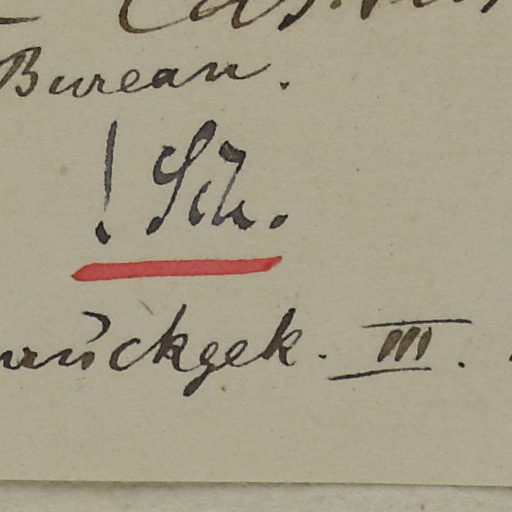 Bureau.
! Sch.
zurückgek. III.